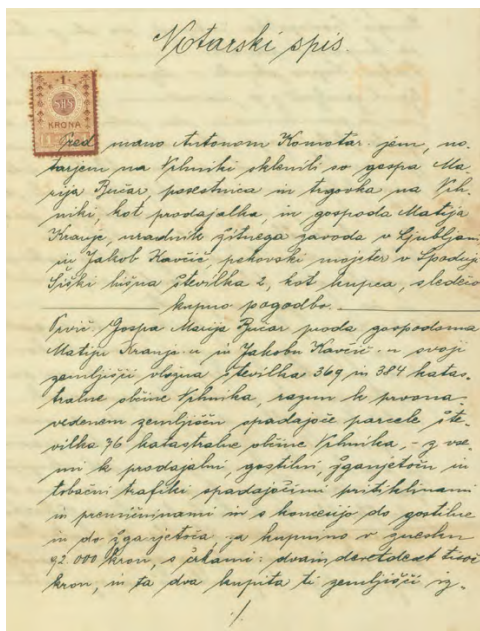 Notarski spis.
1
KRONA
Pred mano Antonom Komotar-jem, no-
tarjem na Vrhniki sklenili so gospa Ma-
rija Bučar posestnica in trgovka na Vrh-
niki, kot prodajalka, in gospoda Matija
Kranjc, uradnik žitnega zavoda v Ljubljani
in Jakob Kavčič pekovski mojster v Spodnji
Šiški hišna številka 2, kot kupca, sledečo
kupno pogodbo.
Prvič: Gospa Marija Bučar proda gospodoma
Matiju Kranjc-u in Jakobu Kavčič-u svoji
zemljišči vložna številka 369 in 384 katas-
tralne občine Vrhnika, razun k prvona-
vedenem zemljišču spadajoče parcele šte-
vilka 76 katastralne občine Vrhnika, - z vse-
mi k prodajalni gostilni, žganjetoču in
tobačni trafiki spadajočimi pritiklinami
in premičninami in s koncesijo do gostilne
in do žganjetoča, za kupnino v znesku
92.000 kron, s črkami: dvaindevetdeset tisoč
kron, in ta dva kupita ti zemljišči iz-
./.